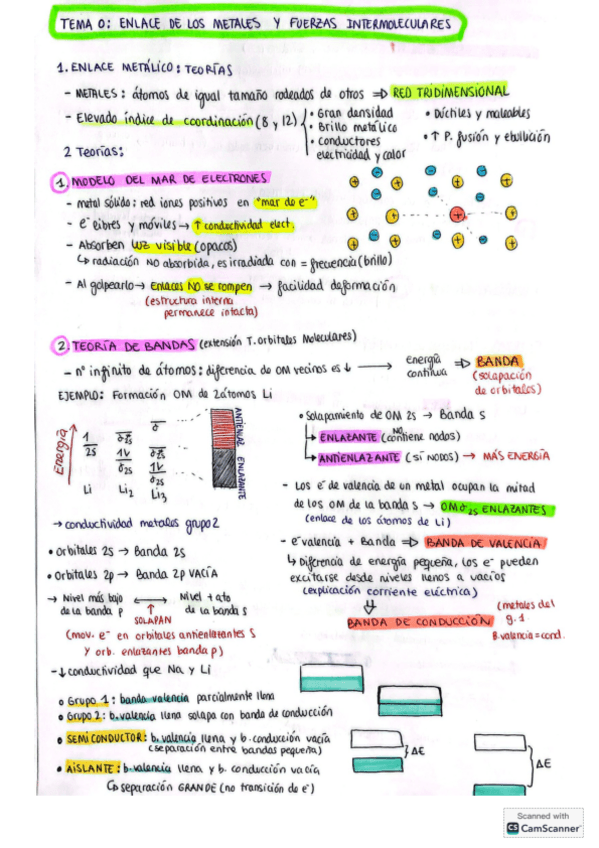 TEMA 0: ENLACE DE LOS METALES Y FUERZAS INTERMOLECULARES
1. ENLACE METÁLICO: TEORÍAS
- METALES: átomos de igual tamaño rodeados de otros ⇒ RED TRIDIMENSIONAL
- Elevado índice de coordinación (8 y 12)
• Gran densidad
• Brillo metálico
• conductores electricidad y calor
• Dúctiles y maleables
• ↑ P. fusión y ebullición
2 Teorías:
1. MODELO DEL MAR DE ELECTRONES
- metal sólido: red iones positivos en "mar de e⁻"
- e⁻ libres y móviles → ↑ conductividad elect.
- Absorben luz visible (opacos)
↳ radiación NO absorbida, es irradiada con = frecuencia (brillo)
- Al golpearlo → Enlaces NO se rompen → facilidad deformación
(estructura interna
permanece intacta)
2. TEORÍA DE BANDAS (extensión T. Orbitales Moleculares)
- nº infinito de átomos: diferencia de OM vecinos es ↓ → energía continua ⇒ BANDA
(solapación
de orbitales)
EJEMPLO: Formación OM de 2 átomos Li
Energía
1
2S
Li
Li₂
Li₃
ANTIENLAZ. ENLAZANTE
• Solapamiento de OM 2s → Banda s
↳ ENLAZANTE (NO contiene nodos)
↳ ANTIENLAZANTE (SÍ NODOS) → MÁS ENERGÍA
- Los e⁻ de valencia de un metal ocupan la mitad
de los OM de la banda s → OM σ2s ENLAZANTES
(enlace de los átomos de Li)
- e⁻ valencia + Banda ⇒ BANDA DE VALENCIA
↳ Diferencia de energía pequeña, los e⁻ pueden
excitarse desde niveles llenos a vacíos
(explicación corriente eléctrica)
BANDA DE CONDUCCIÓN
(metales del
g. 1
B. valencia = cond.
→ conductividad metales grupo 2
• Orbitales 2s → Banda 2s
• Orbitales 2p → Banda 2p VACÍA
→ Nivel más bajo ↔ Nivel + alto
de la banda p de la banda s
SOLAPAN
(mov. e⁻ en orbitales antienlazantes S
y orb. enlazantes banda p)
- ↓ conductividad que Na y Li
• Grupo 1: banda valencia parcialmente llena
• Grupo 2: b. valencia llena solapa con banda de conducción
• SEMICONDUCTOR: b. valencia llena y b. conducción vacía
(separación entre bandas pequeña)
ΔE
• AISLANTE: b. valencia llena y b. conducción vacía
ΔE
↳ separación GRANDE (no transición de e⁻)
Scanned with
CS CamScanner